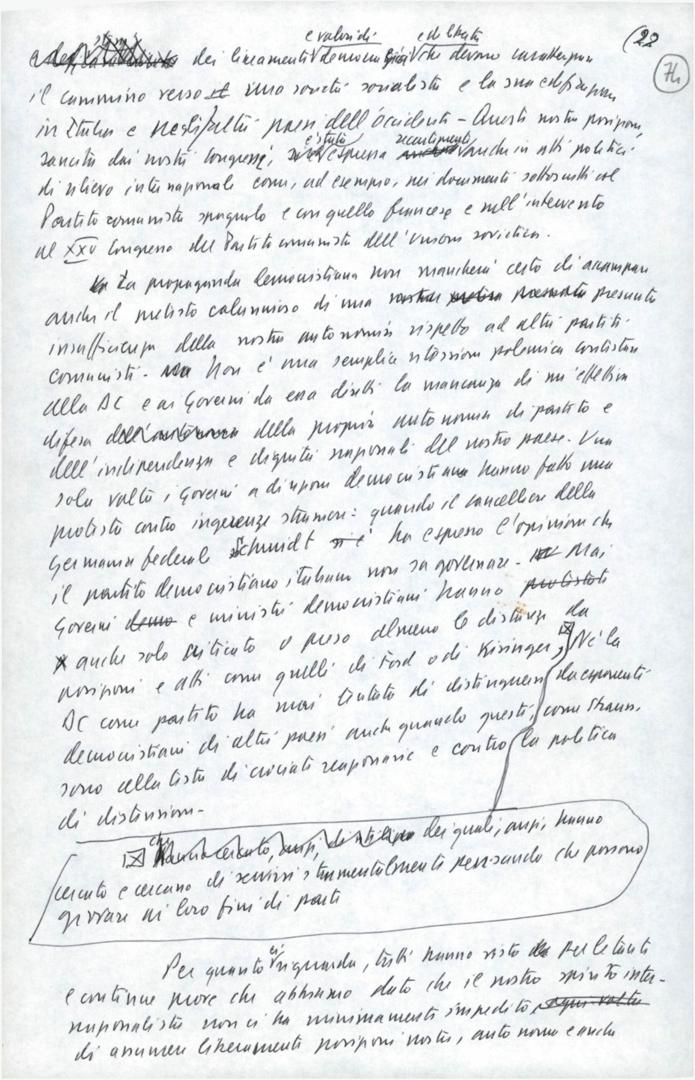 (22
74
e valori di ed libertà
dei lineamenti democratici che devono caratterizzare
il cammino verso una società socialista e la sua edificazione
in Italia e negli altri paesi dell'Occidente - Queste nostre posizioni,
sancite dai nostri congressi, è stata espressa recentemente anche in atti politici
di rilievo internazionale come, ad esempio, nei documenti sottoscritti col
Partito comunista spagnolo e con quello francese e nell'intervento
al XXV Congresso del Partito comunista dell'Unione sovietica.
La propaganda democristiana non mancherà certo di accampare
anche il pretesto calunnioso di una presunta
insufficienza della nostra autonomia rispetto ad altri partiti
comunisti - Non è una semplice ritorsione polemica contestare
alla DC e ai Governi da essa diretti la mancanza di un'effettiva
difesa della propria autonomia di partito e
dell'indipendenza e dignità nazionali del nostro paese. Una
sola volta i Governi a direzione democristiana hanno fatto una
protesta contro ingerenze straniere: quando il cancelliere della
Germania federale Schmidt ha espresso l'opinione che
il partito democristiano italiano non sa governare - Mai
Governi e ministri democristiani hanno
anche solo criticato o preso almeno le distanze da
posizioni e atti come quelli di Ford o di Kissinger, Né la
DC come partito ha mai tentato di distinguersi da esponenti
democristiani di altri paesi anche quando questi, come Strauss,
sono alla testa di crociate reazionarie e contro la politica
di distensione -
dei quali, anzi, hanno
cercato e cercano di servirsi strumentalmente pensando che possono
giovare ai loro fini di parte
Per quanto ci riguarda, tutti hanno visto per le tante
e continue prove che abbiamo dato che il nostro spirito inter-
nazionalista non ci ha minimamente impedito,
di assumere liberamente posizioni nostre, autonome e anche